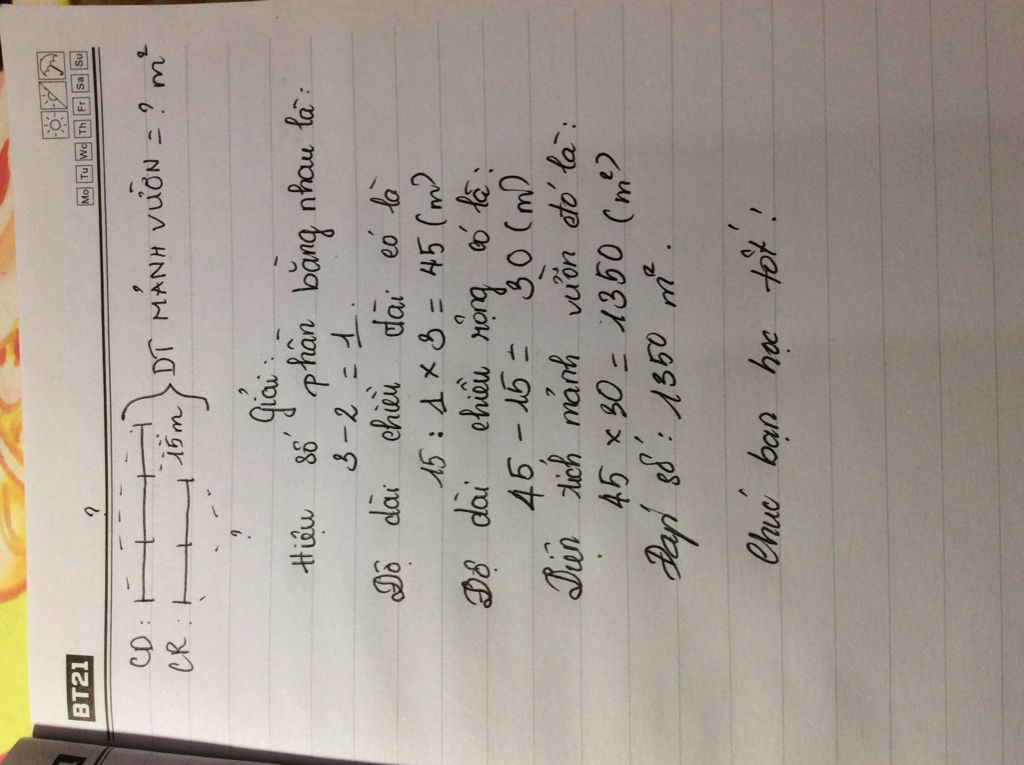 BT21
Mo Tu We Th Fr Sa Su
?
CD:
CR: 15m DT MẢNH VƯỜN = ? m²
?
Giải:
Hiệu số phần bằng nhau là:
3 - 2 = 1
Độ dài chiều dài có là
15 : 1 x 3 = 45 (m)
Độ dài chiều rộng có là:
45 - 15 = 30 (m)
Diện tích mảnh vườn đó là:
45 x 30 = 1350 (m²)
Đáp số: 1350 m².
Chúc bạn học tốt!